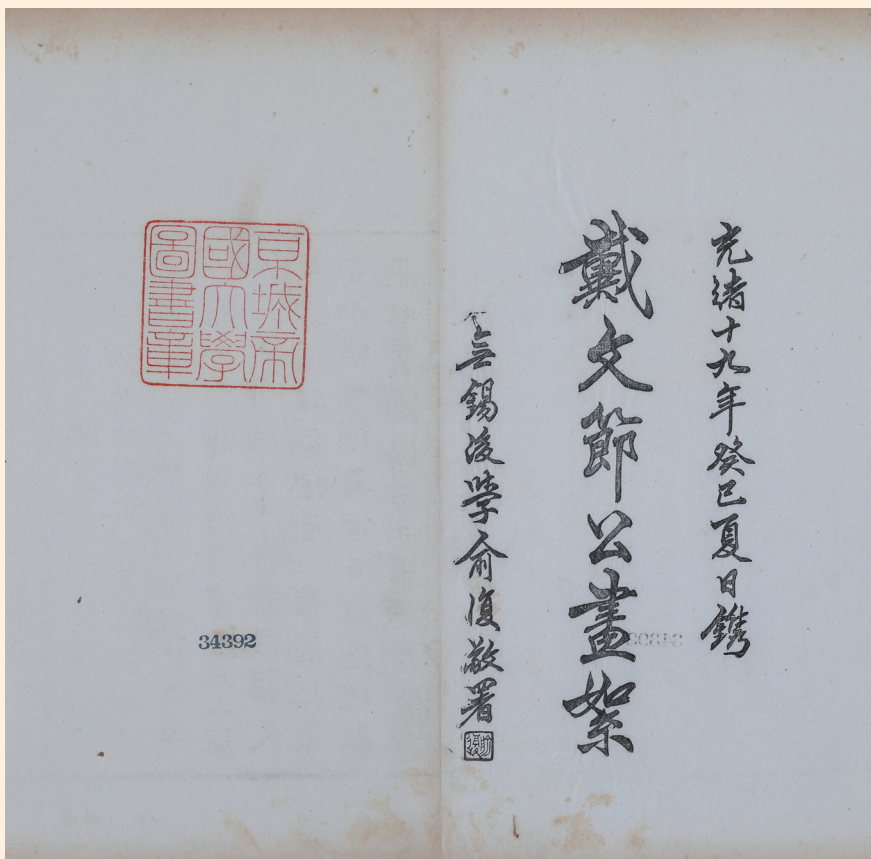 光緒十九年癸巳夏日鐫
戴文節公畫絮
無錫後學俞復敬署
京城帝
國大學
圖書章
34392